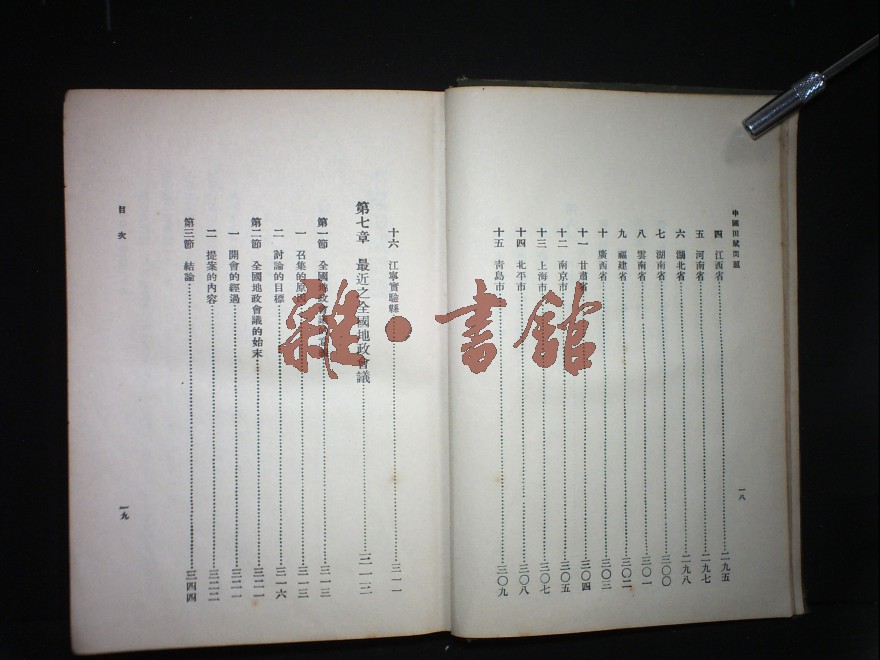 中國田賦問題
四 江西省……二九五
五 河南省……二九七
六 湖北省……二九八
七 湖南省……三〇〇
八 雲南省……三〇一
九 福建省……三〇二
十 廣西省……三〇三
十一 甘肅省……三〇四
十二 南京市……三〇五
十三 上海市……三〇七
十四 北平市……三〇八
十五 青島市……三〇九
一八
十六 江寧實驗縣……三一一
第七章 最近之全國地政會議……三一三
第一節 全國地政會議……三一三
一 召集的原因……三一三
二 討論的目標……三一六
第二節 全國地政會議的始末……三二一
一 開會的經過……三二一
二 提案的內容……三二二
第三節 結論……三四四
目次
一九
雜·書館